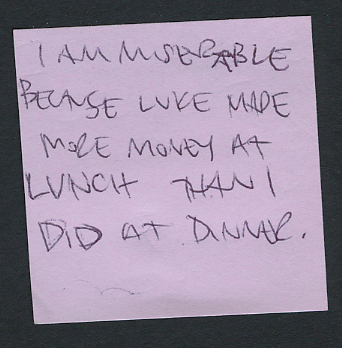 I AM MISERABLE
BECAUSE LUKE MADE
MORE MONEY AT
LUNCH THAN I
DID AT DINNER.